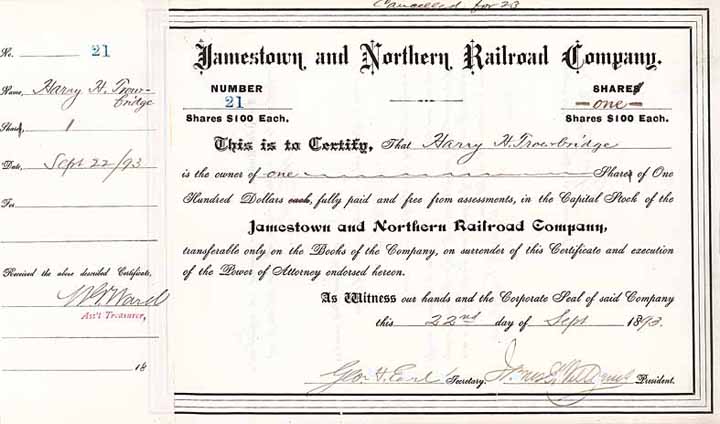 Cancelled for 23
No. 21
Name, Harry H. Trow-
bridge
Share, 1
Date, Sept 22/93
For
Received the above described Certificate.
Ass't Treasurer,
18
Jamestown and Northern Railroad Company.
NUMBER
21
Shares $100 Each.
SHARES
one
Shares $100 Each.
This is to Certify, That Harry H. Trowbridge
is the owner of one Shares of One
Hundred Dollars each, fully paid and free from assessments, in the Capital Stock of the
Jamestown and Northern Railroad Company,
transferable only on the Books of the Company, on surrender of this Certificate and execution
of the Power of Attorney endorsed hereon.
As Witness our hands and the Corporate Seal of said Company
this 22nd day of Sept 1893.
Geo. H. Earl Secretary. President.